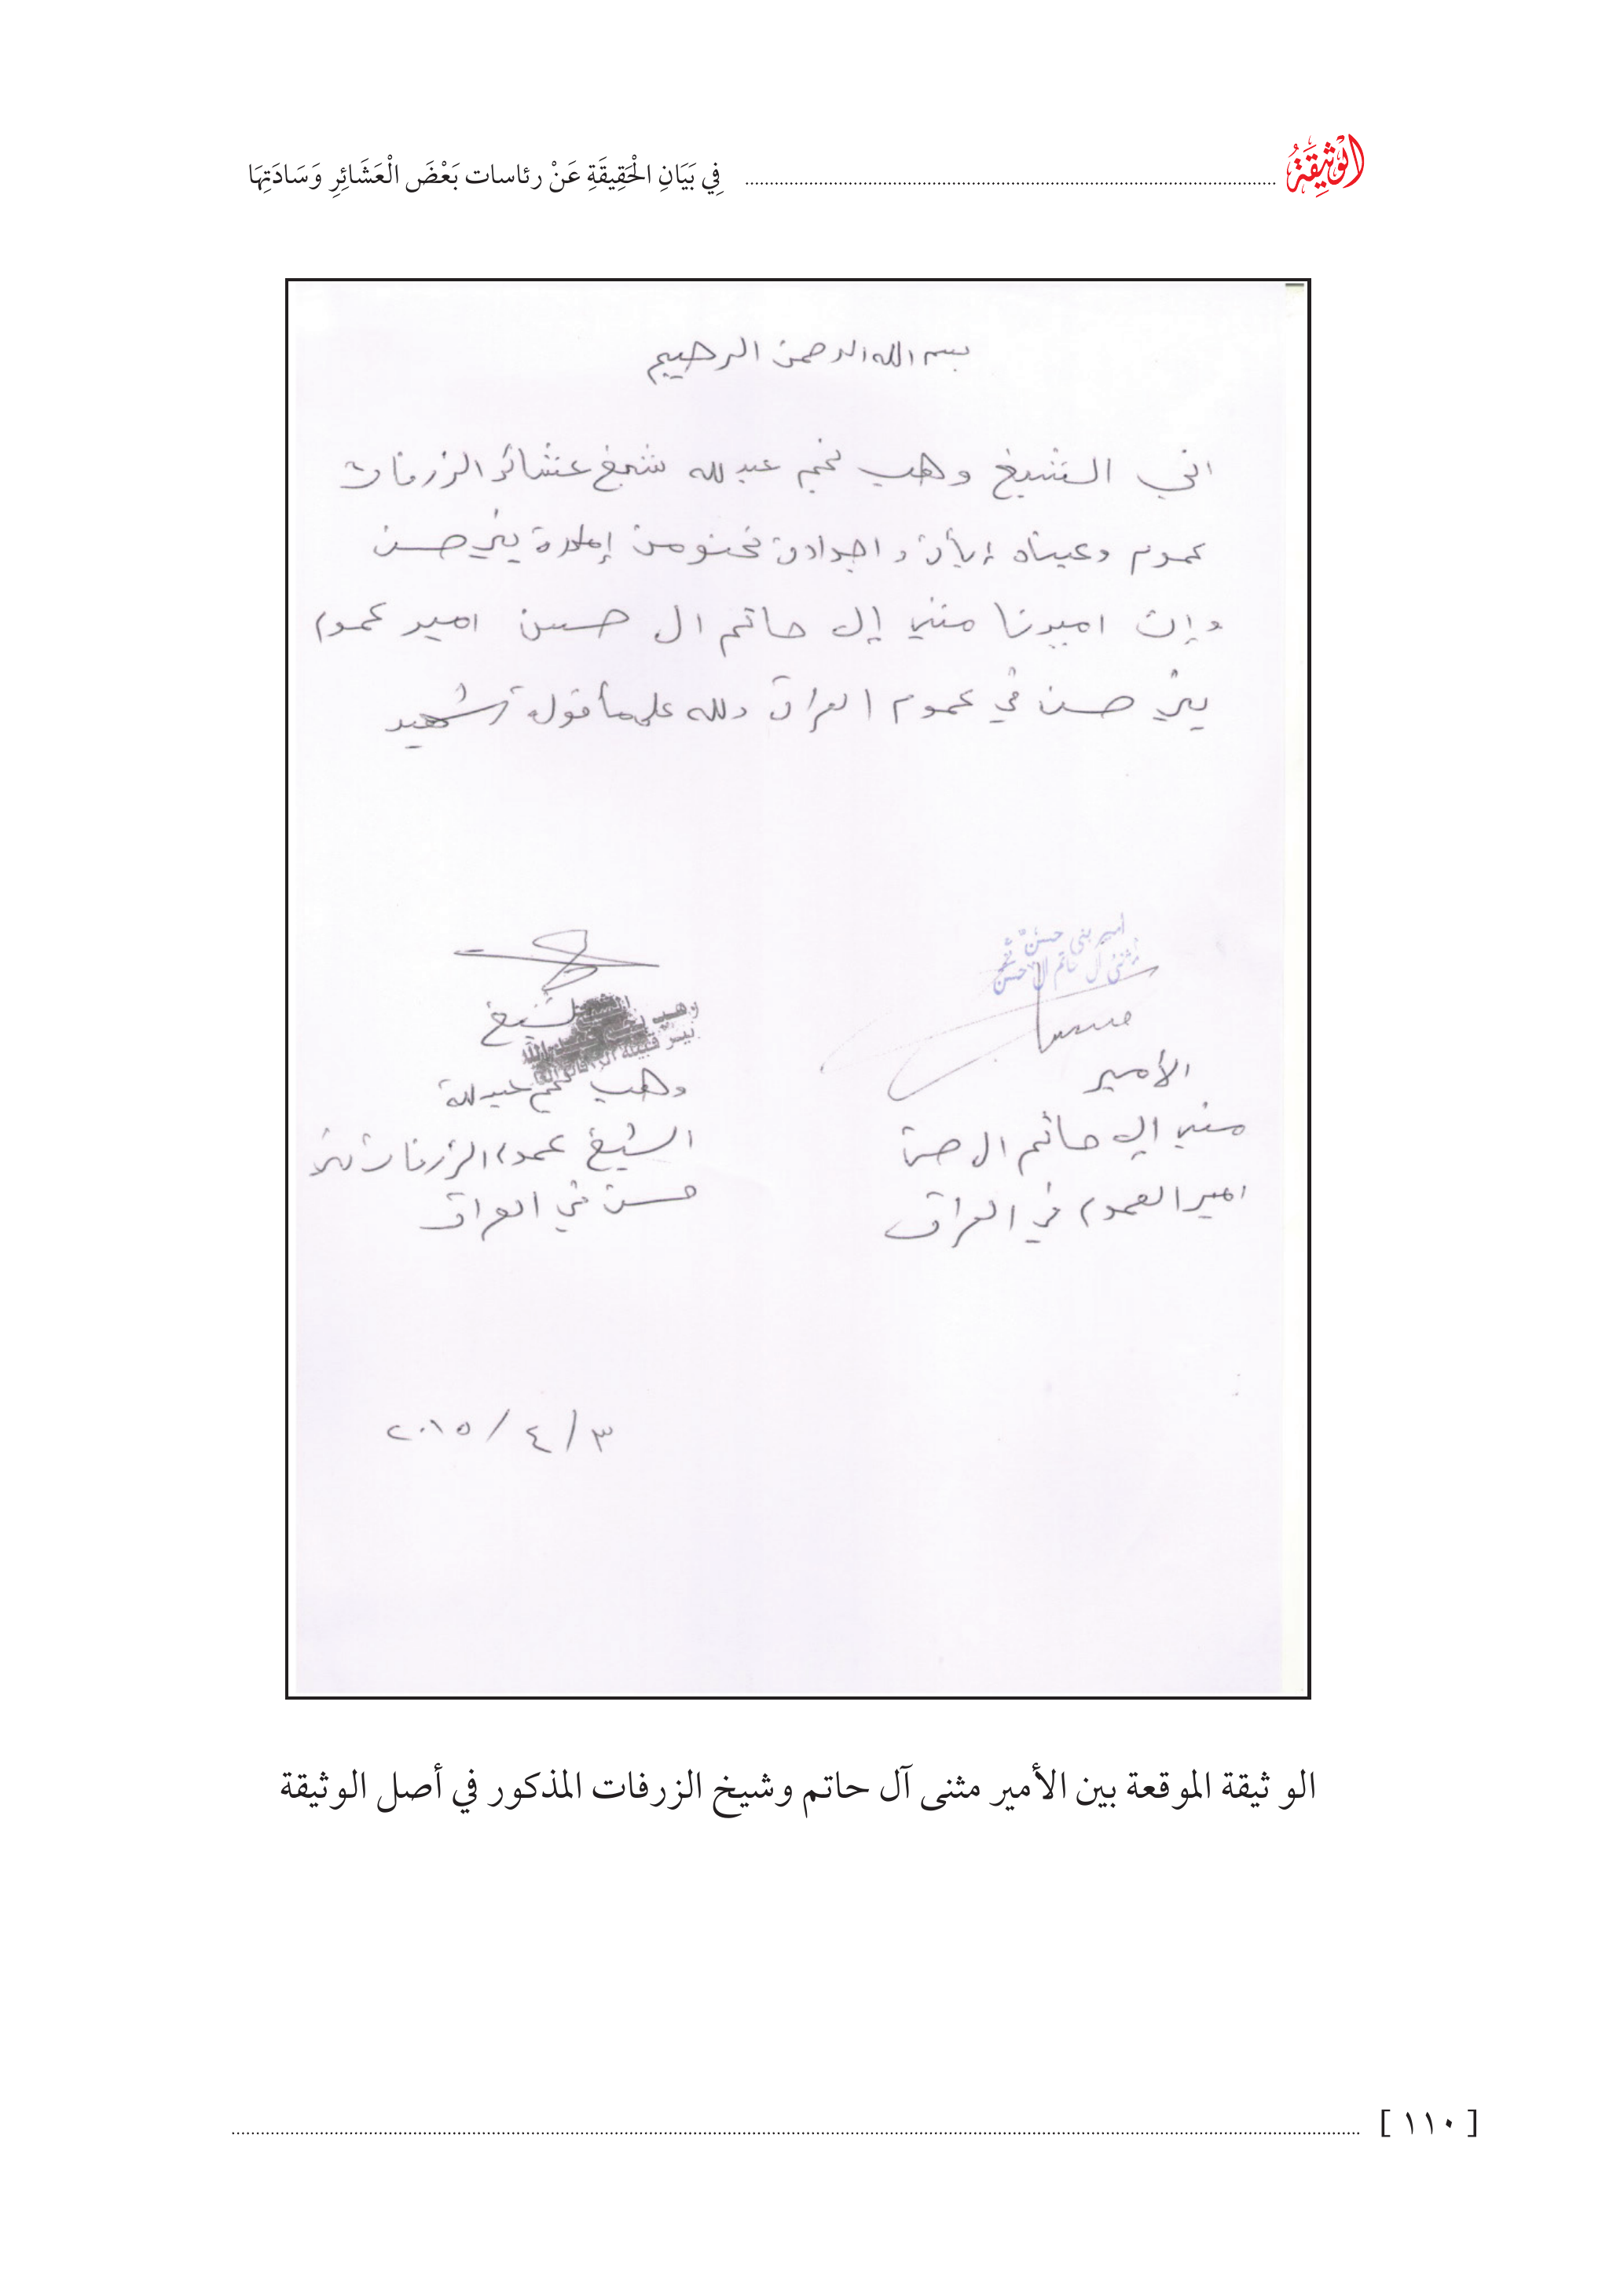 الْوَثِيقَةُ فِي بَيَانِ الْحَقِيقَةِ عَنْ رئاسات بَعْضَ الْعَشَائِرِ وَسَادَتِهَا
بسم الله الرحمن الرحيم
اني الشيخ وهب نجم عبد لله شيخ عشائر الزرفات
عموم وعيناه واجدادن نحنو من إمارة بني حسن
وإن اميرنا مثنى إل حاتم ال حسن امير عموم
بني حسن في عموم العراق ولله على مأقول شهيد
امير بني حسن
مثنى آل حاتم آل حسن
الأمير
مثنى إل حاتم ال حسن
امير العموم في العراق
الشيخ
وهب نجم عبد لله
الشيخ عموم الزرفات بني
حسن في العراق
٣ / ٤ / ٢٠١٥
الو ثيقة الموقعة بين الأمير مثنى آل حاتم وشيخ الزرفات المذكور في أصل الوثيقة
[ ١١٠ ]